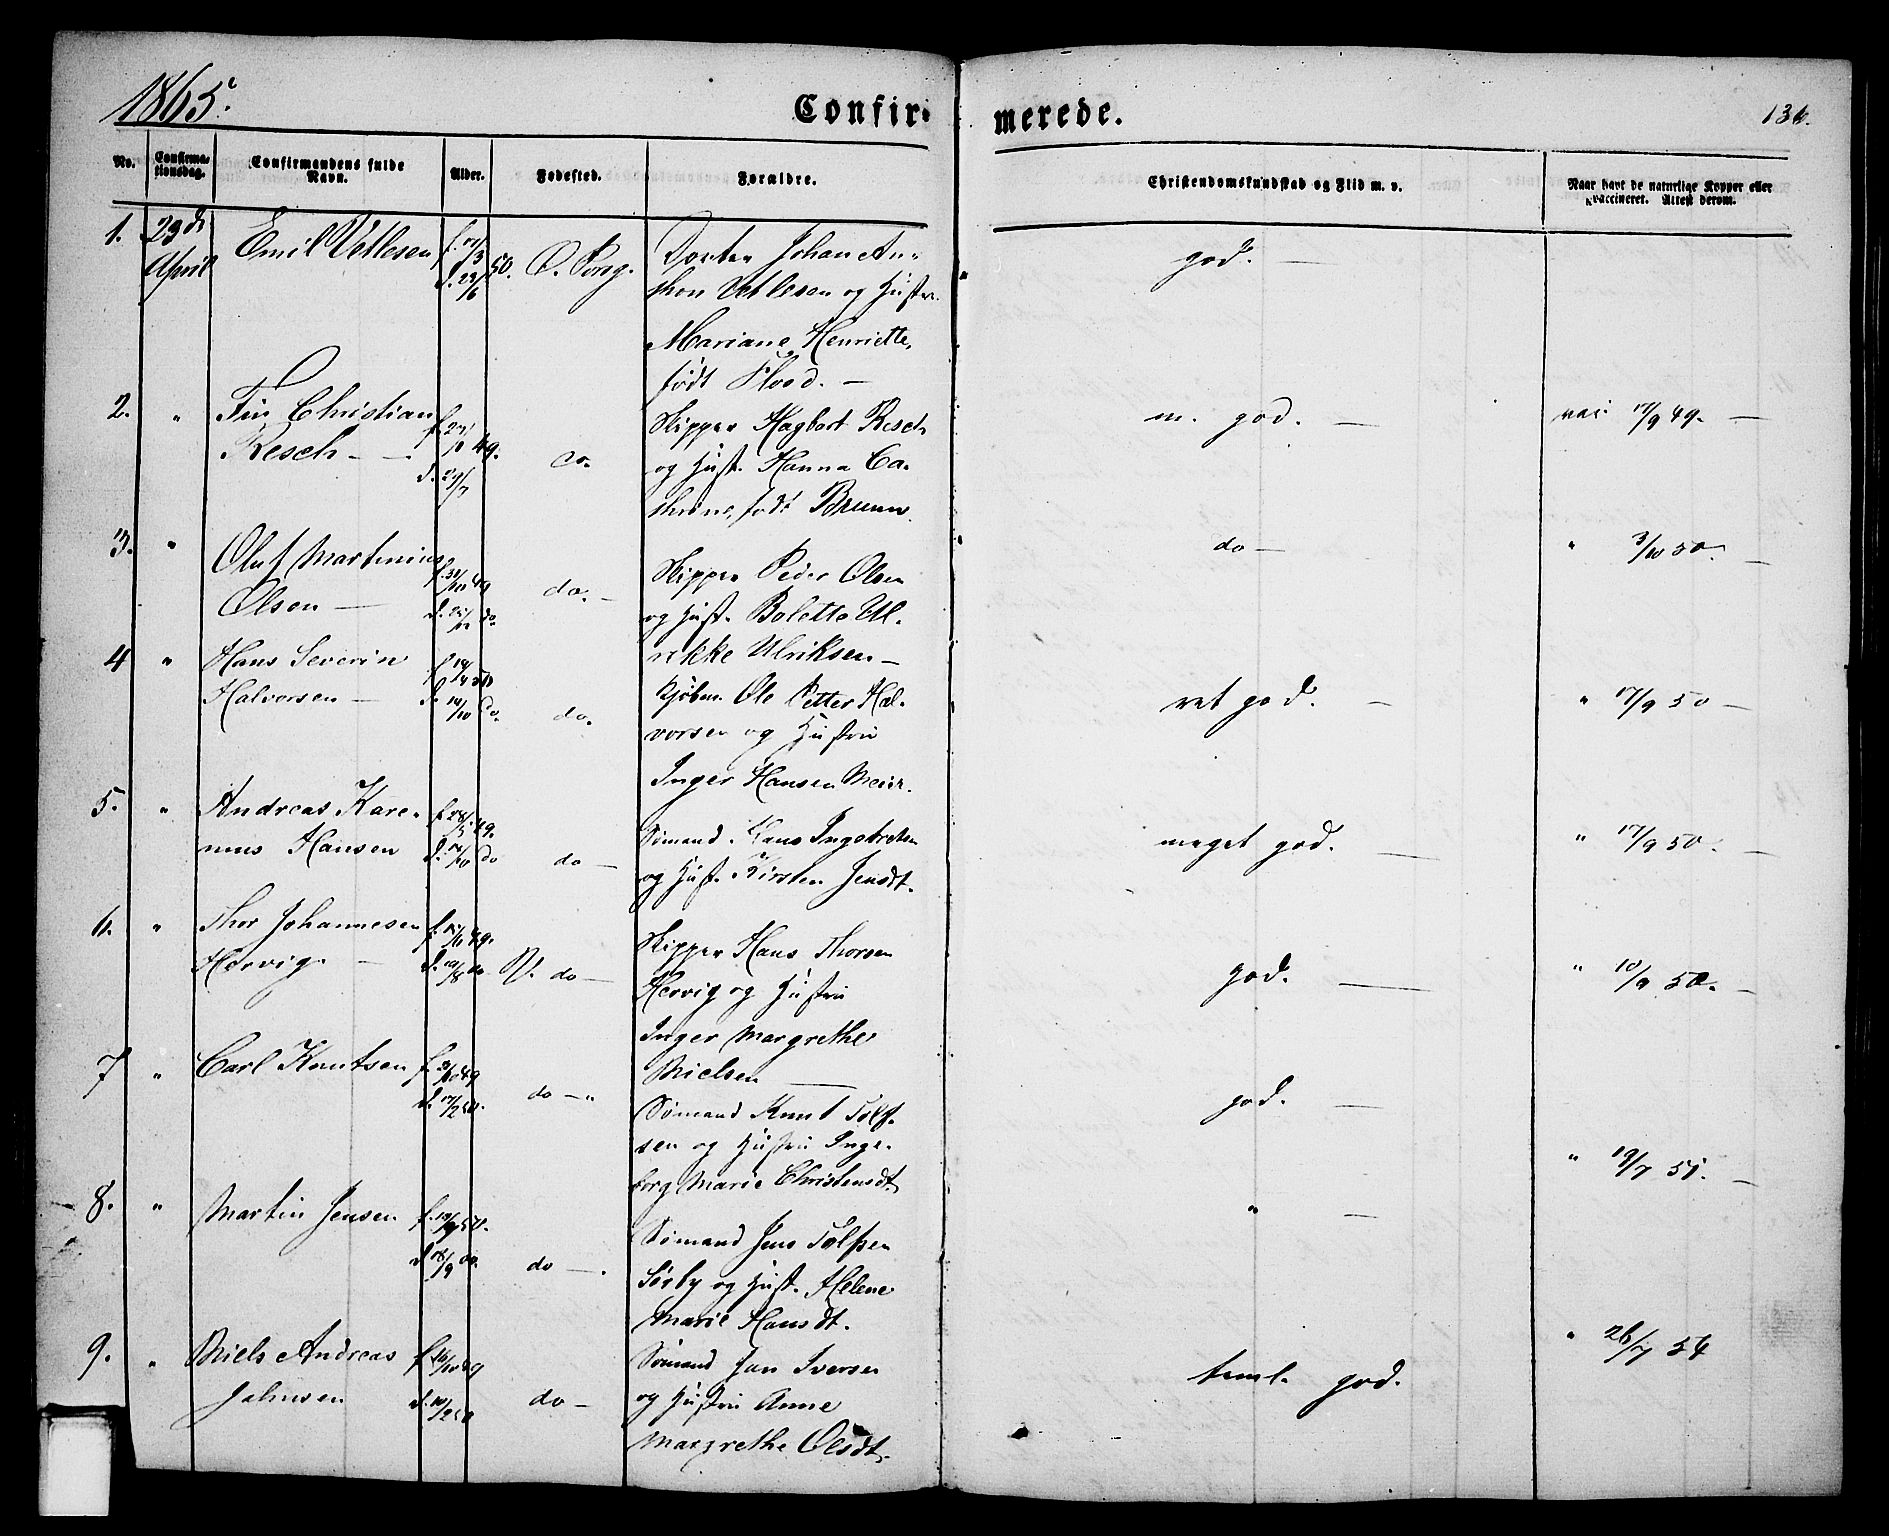 1865.
Confir-
merede.
136.
No.
Confirma-
tionsdag.
Confirmandens fulde
Navn.
Alder.
Fødested.
Forældre.
Christendomskundskab og Flid m. v.
Naar havt de naturlige Kopper eller
vaccineret. Attest derom.
1. 23de
April
Emil Vetlesen
50.
O. Porsg.
Johan An-
thon Vetlesen og Hustru
Mariane Henriette,
født Flood. —
god. —
2. " Fin Christian
Resch — —
49.
do.
Skipper Hagbart Resch
og Hust. Hanna Ca-
thrine, født Bruun.
m. god. —
vac. 17/9 49. —
3. " Oluf Martinius
Olsen —
f. 31/10 49
do. —
Skipper Peder Olsen
og Hust. Bolette Ul-
rikke Ulriksen —
do —
" 3/10 50. —
4 " Hans Severin
Halvorsen —
do.
Kjøbm. Ole Petter Hal-
vorsen og Hustru
Inger Hansen Meier.
ret god. —
" 17/9 50 —
5. " Andreas Kare-
nius Hansen
do —
Sømand Hans Ingebretsen
og Hust. Kirsten Jensdt.
meget god. —
" 17/9 50. —
6. " Thor Johannesen
Hervig. —
V. do —
Skipper Hans Thorsen
Hervig og Hustru
Inger Margrethe
Nielsen —
god. —
" 10/9 50. —
7 " Carl Knutsen
do — "
Sømand Knut Tolf-
sen og Hustru Inge-
borg Marie Christensdt.
god. —
" 19/7 51. —
8. " Martin Jensen
do —.
Sømand Jens Tolfsen
Sørby og Hust. Helene
Marie Hansdt.
" —
9. " Niels Andreas
Jahnsen
do —
Sømand Jan Iversen
og Hustru Anne
Margrethe Olsdt.
teml. god.
" 26/7 54